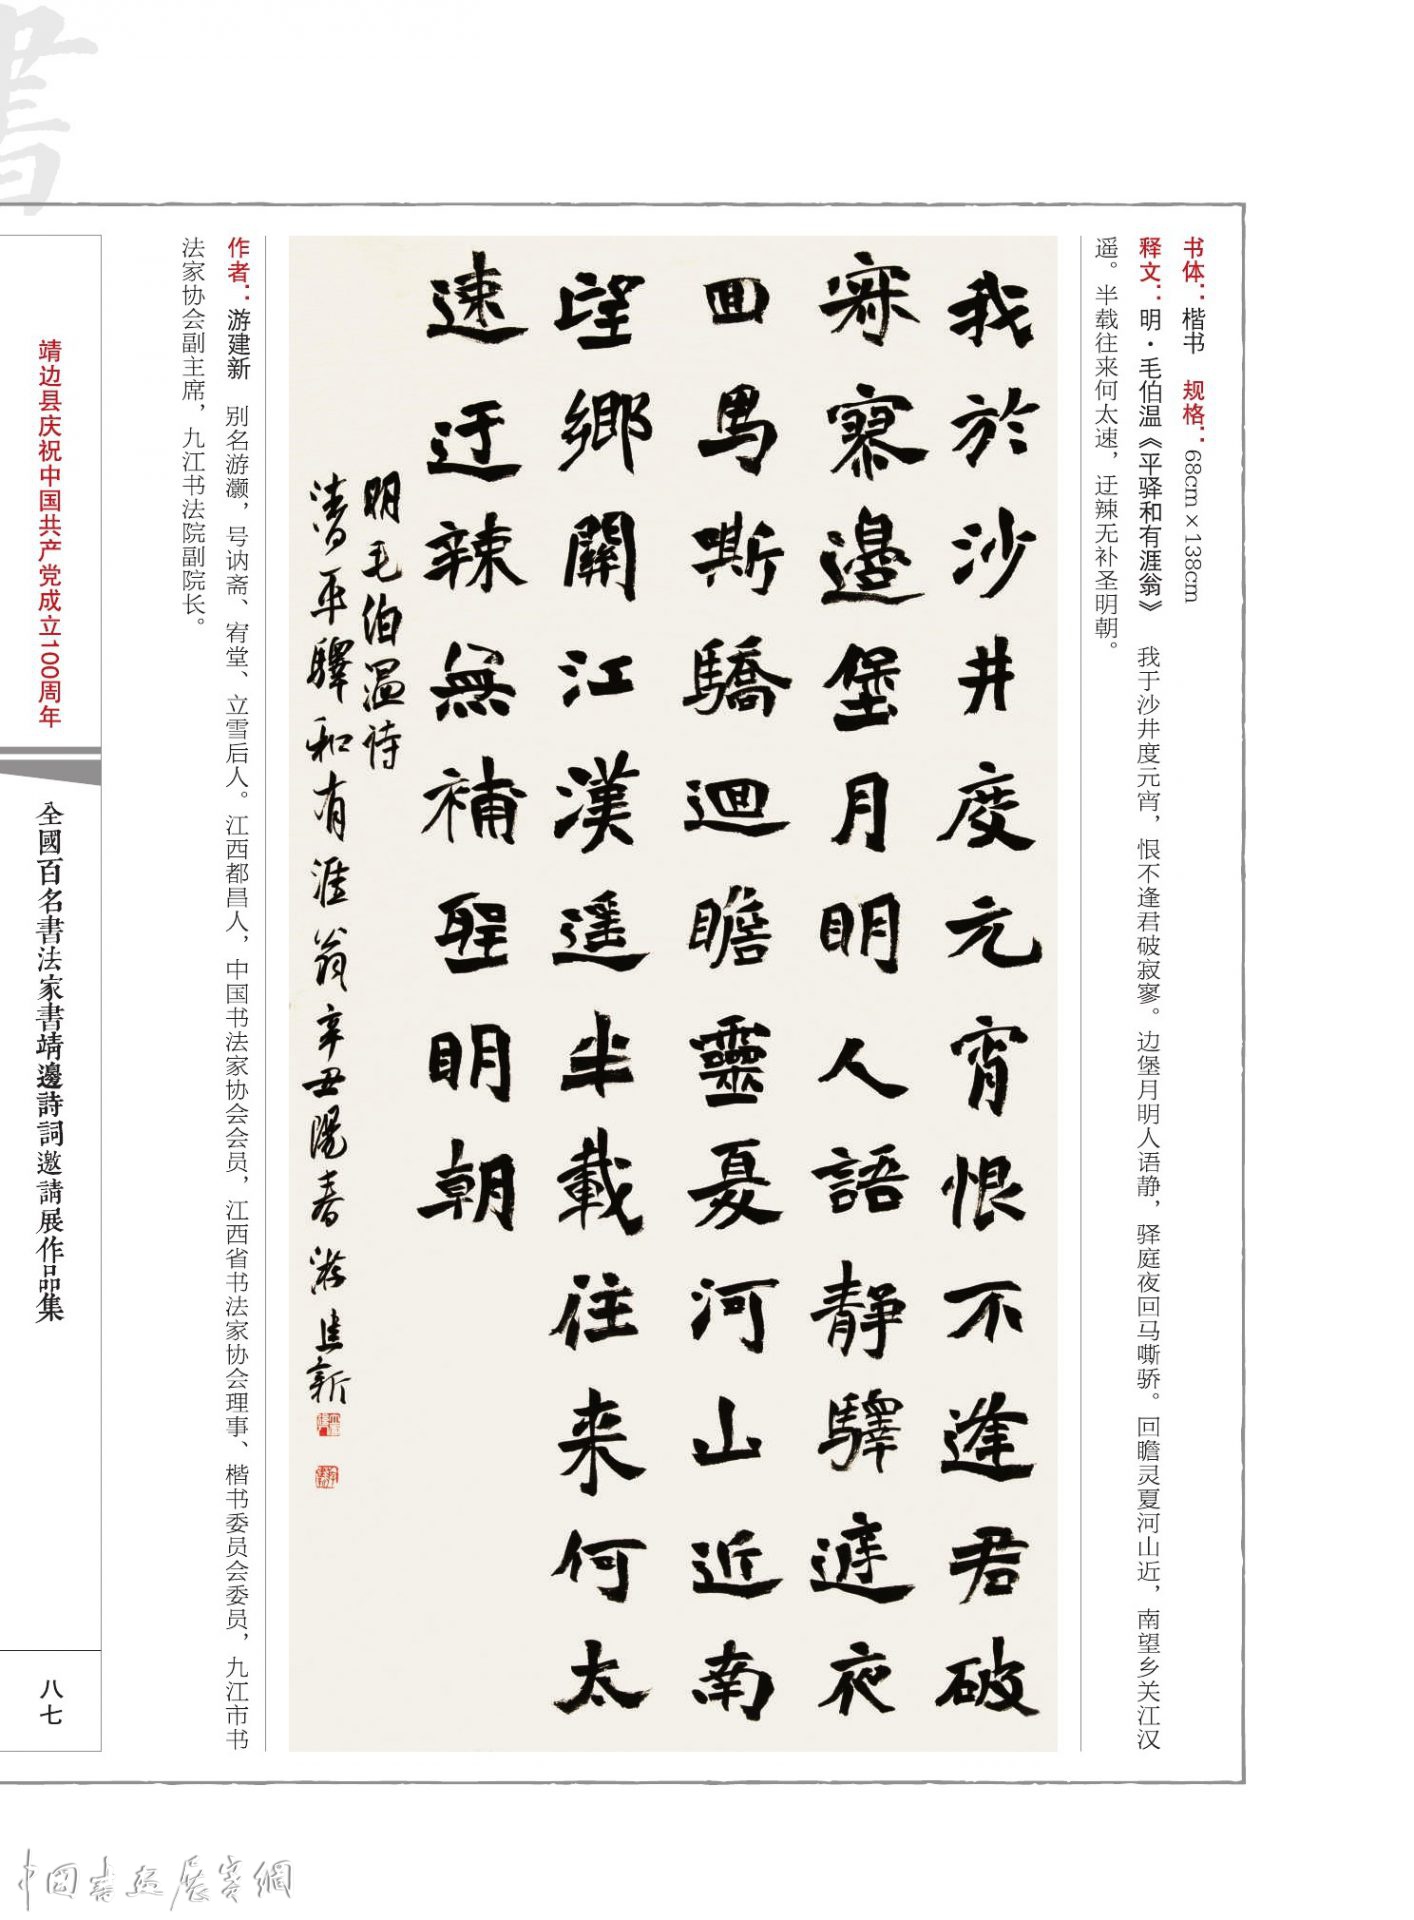 書
书体：楷书　规格：68cm×138cm
释文：明·毛伯温《平驿和有涯翁》　我于沙井度元宵，恨不逢君破寂寥。边堡月明人语静，驿庭夜回马嘶骄。回瞻灵夏河山近，南望乡关江汉
遥。半载往来何太速，迂辣无补圣明朝。
我於沙井度元宵恨不逢君破
寂寥邊堡月明人語靜驛遅夜
回馬嘶驕迴瞻靈夏河山近南
望鄉關江漢遥半載往来何太
速迂辣無補聖明朝
明毛伯温诗
清平驛和有涯翁辛丑陽春游建新
作者：游建新　别名游灏，号讷斋、宥堂、立雪后人。江西都昌人，中国书法家协会会员，江西省书法家协会理事、楷书委员会委员，九江市书
法家协会副主席，九江书法院副院长。
靖边县庆祝中国共产党成立100周年
全國百名書法家書靖邊詩詞邀請展作品集
八七
中國書畫展賽網